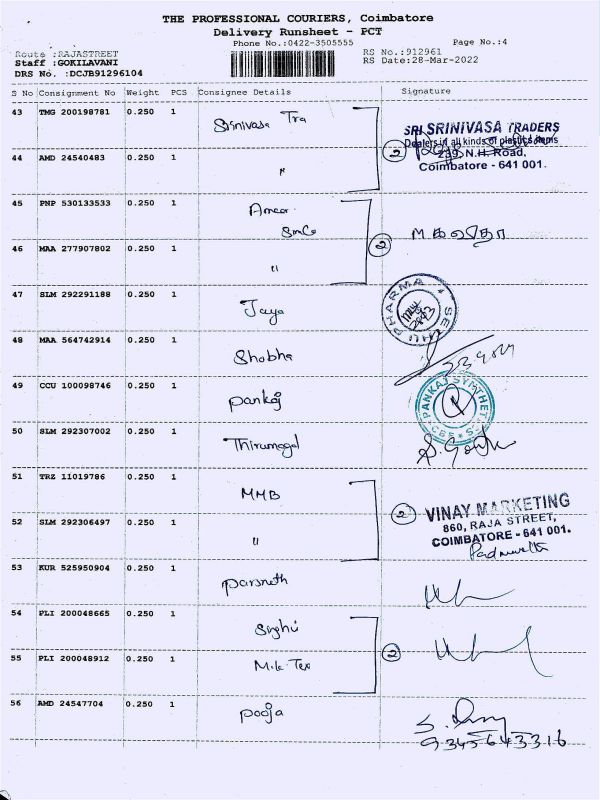 THE PROFESSIONAL COURIERS, Coimbatore
Delivery Runsheet - PCT
Phone No.:0422-3505555
Page No.:4
Route :RAJASTREET
RS No.:912961
Staff :GOKILAVANI
RS Date:28-Mar-2022
DRS No. :DCJB91296104
S No Consignment No Weight PCS Consignee Details Signature
43 TMG 200198781 0.250 1 Srinivasa Tra
SRI SRINIVASA TRADERS
Dealers in all kinds of plastic items
239, N.H. Road,
Coimbatore - 641 001.
2
44 AMD 24540483 0.250 1 "
45 PNP 530133533 0.250 1 Ameer
2
46 MAA 277907802 0.250 1 "
47 SLM 292291188 0.250 1 Jaya
SETHU PHARMA
48 MAA 564742914 0.250 1 Shobha
49 CCU 100098746 0.250 1 Pankaj
PANKAJ SYNTHET
CBE
50 SLM 292307002 0.250 1 Thirumagal
51 TRZ 11019786 0.250 1 MMB
2
VINAY MARKETING
860, RAJA STREET,
COIMBATORE - 641 001.
52 SLM 292306497 0.250 1 "
53 KUR 525950904 0.250 1 Parsnath
54 PLI 200048665 0.250 1 Singhvi
2
55 PLI 200048912 0.250 1 M.K Tex
56 AMD 24547704 0.250 1 Pooja
9345643316